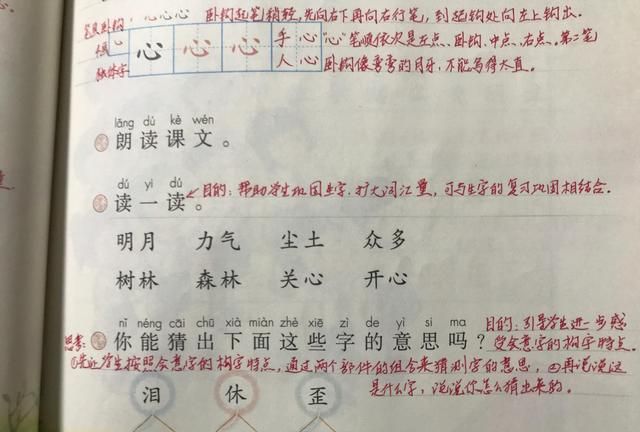 卧钩起笔稍轻，先向右下再向右行笔，到起钩处向左上钩出。
心 心 心 心 手心 "心"笔顺依次是左点、卧钩、中点、右点。第二笔
独体字 人心 卧钩像弯弯的月牙，不能写得太直。
lǎng dú kè wén
朗读课文。
dú yi dú
读一读。 目的：帮助学生巩固生字，扩大词汇量，可与生字的复习巩固相结合。
明月 力气 尘土 众多
树林 森林 关心 开心
nǐ néng cāi chū xià miàn zhè xiē zì de yì si ma
思考： 你能猜出下面这些字的意思吗？ 目的：引导学生进一步感受会意字的构字特点。
①先让学生按照会意字的构字特点，通过两个部件的组合来猜测字的意思，②再说说这
是什么字，说说你怎么猜出来的。
泪 休 歪